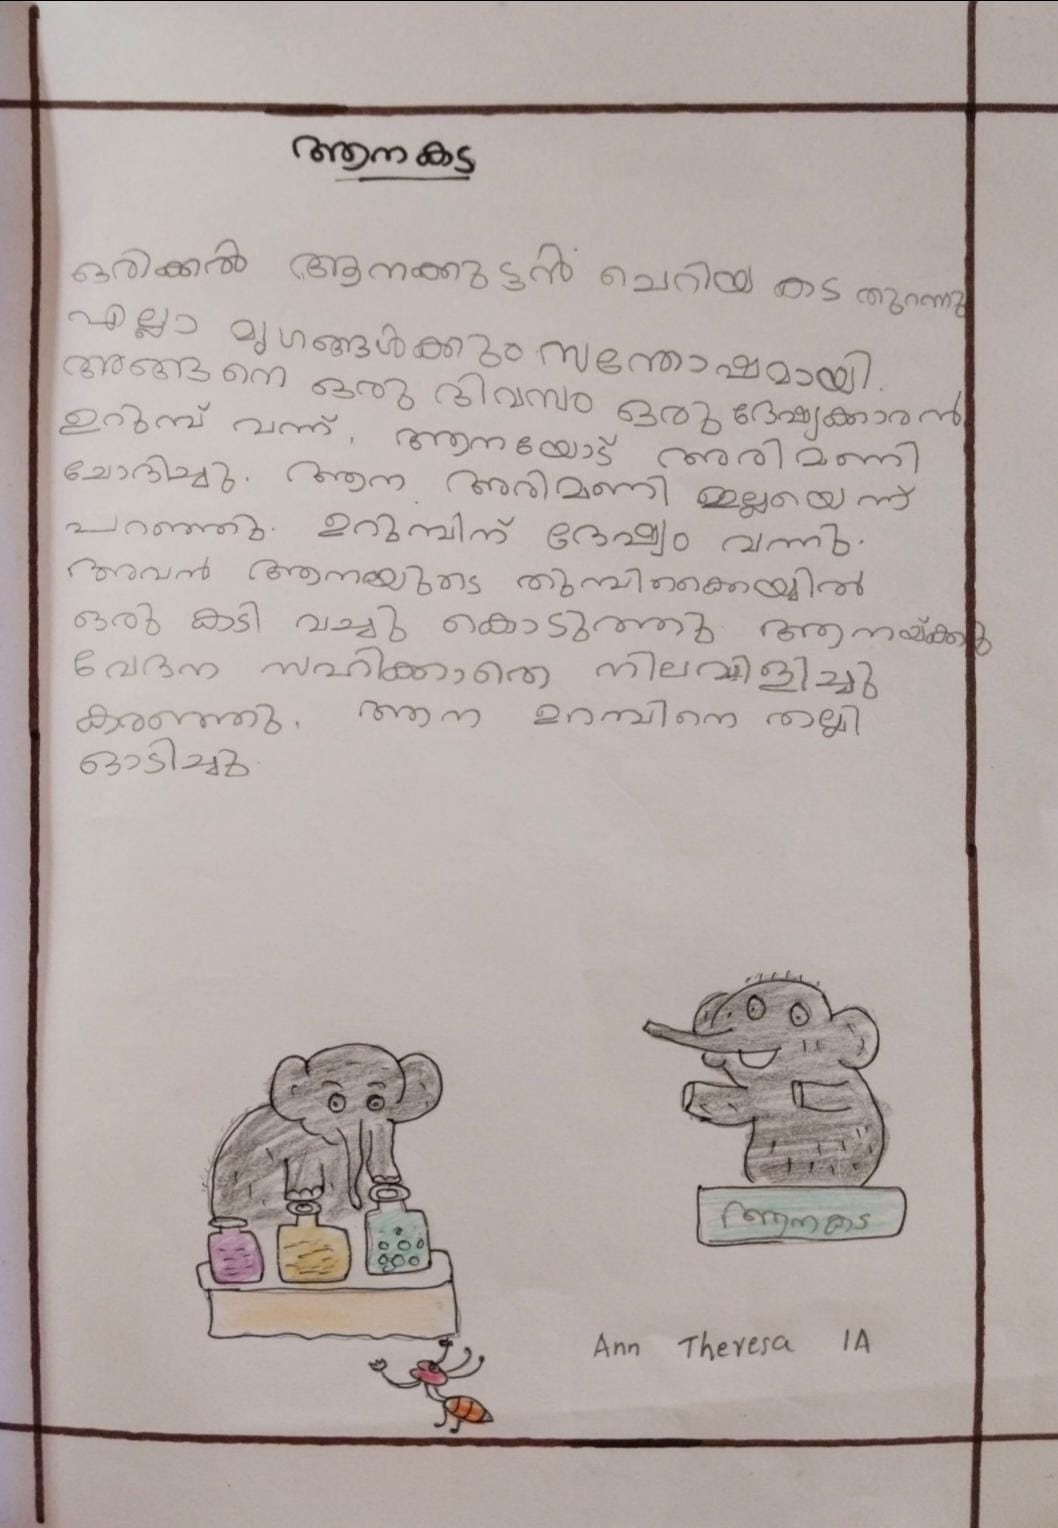 ആനകട
ഒരിക്കൽ ആനക്കുട്ടൻ ചെറിയ കട തുറന്നു
എല്ലാ മൃഗങ്ങൾക്കും സന്തോഷമായി.
അങ്ങനെ ഒരു ദിവസം ഒരു ദേഷ്യക്കാരൻ
ഉറുമ്പ് വന്ന്. ആനയോട് അരിമണി
ചോദിച്ചു. ആന അരിമണി ഇല്ലയെന്ന്
പറഞ്ഞു. ഉറുമ്പിന് ദേഷ്യം വന്നു.
അവൻ ആനയുടെ തുമ്പിക്കൈയ്യിൽ
ഒരു കടി വച്ചു കൊടുത്തു. ആനയ്ക്കു
വേദന സഹിക്കാതെ നിലവിളിച്ചു
കരഞ്ഞു. ആന ഉറമ്പിനെ തല്ലി
ഓടിച്ചു.
ആനകട
Ann Theresa 1A